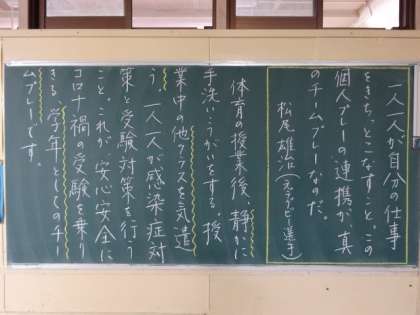 一人一人が自分の仕事
をきちっとこなすこと。この
個人プレーの連携が、真
のチームプレーなのだ。
松尾 雄治(元ラグビー選手)
体育の授業後、静かに
手洗い、うがいをする。授
業中の他クラスを気遣
う。一人一人が感染症対
策と受験対策を行う
こと。これが、安心安全に
コロナ禍の受験を乗り
きる、学年としてのチー
ムプレーです。